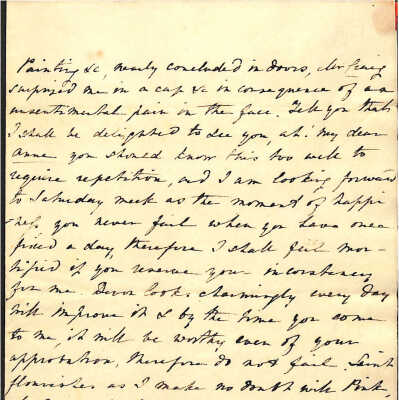 Painting &c, nearly concluded in doors, Mr Craig
surprised me in a cap &c in consequence of an
unsentimental pain in the face. Tell you that
I shall be delighted to see you, ah! my dear
Anne you should know this too well to
require repetition, and I am looking forward
to Saturday week as the moment of happi
-ness, you never fail when you have once
fixed a day, therefore I shall feel mor-
tified if you reserve your inconstancy
for me. Devon looks charmingly every day
will improve it & by the time you come
to me, it will be worthy even of your
approbation, therefore do not fail.
flourishes as I make no doubt will Pink,